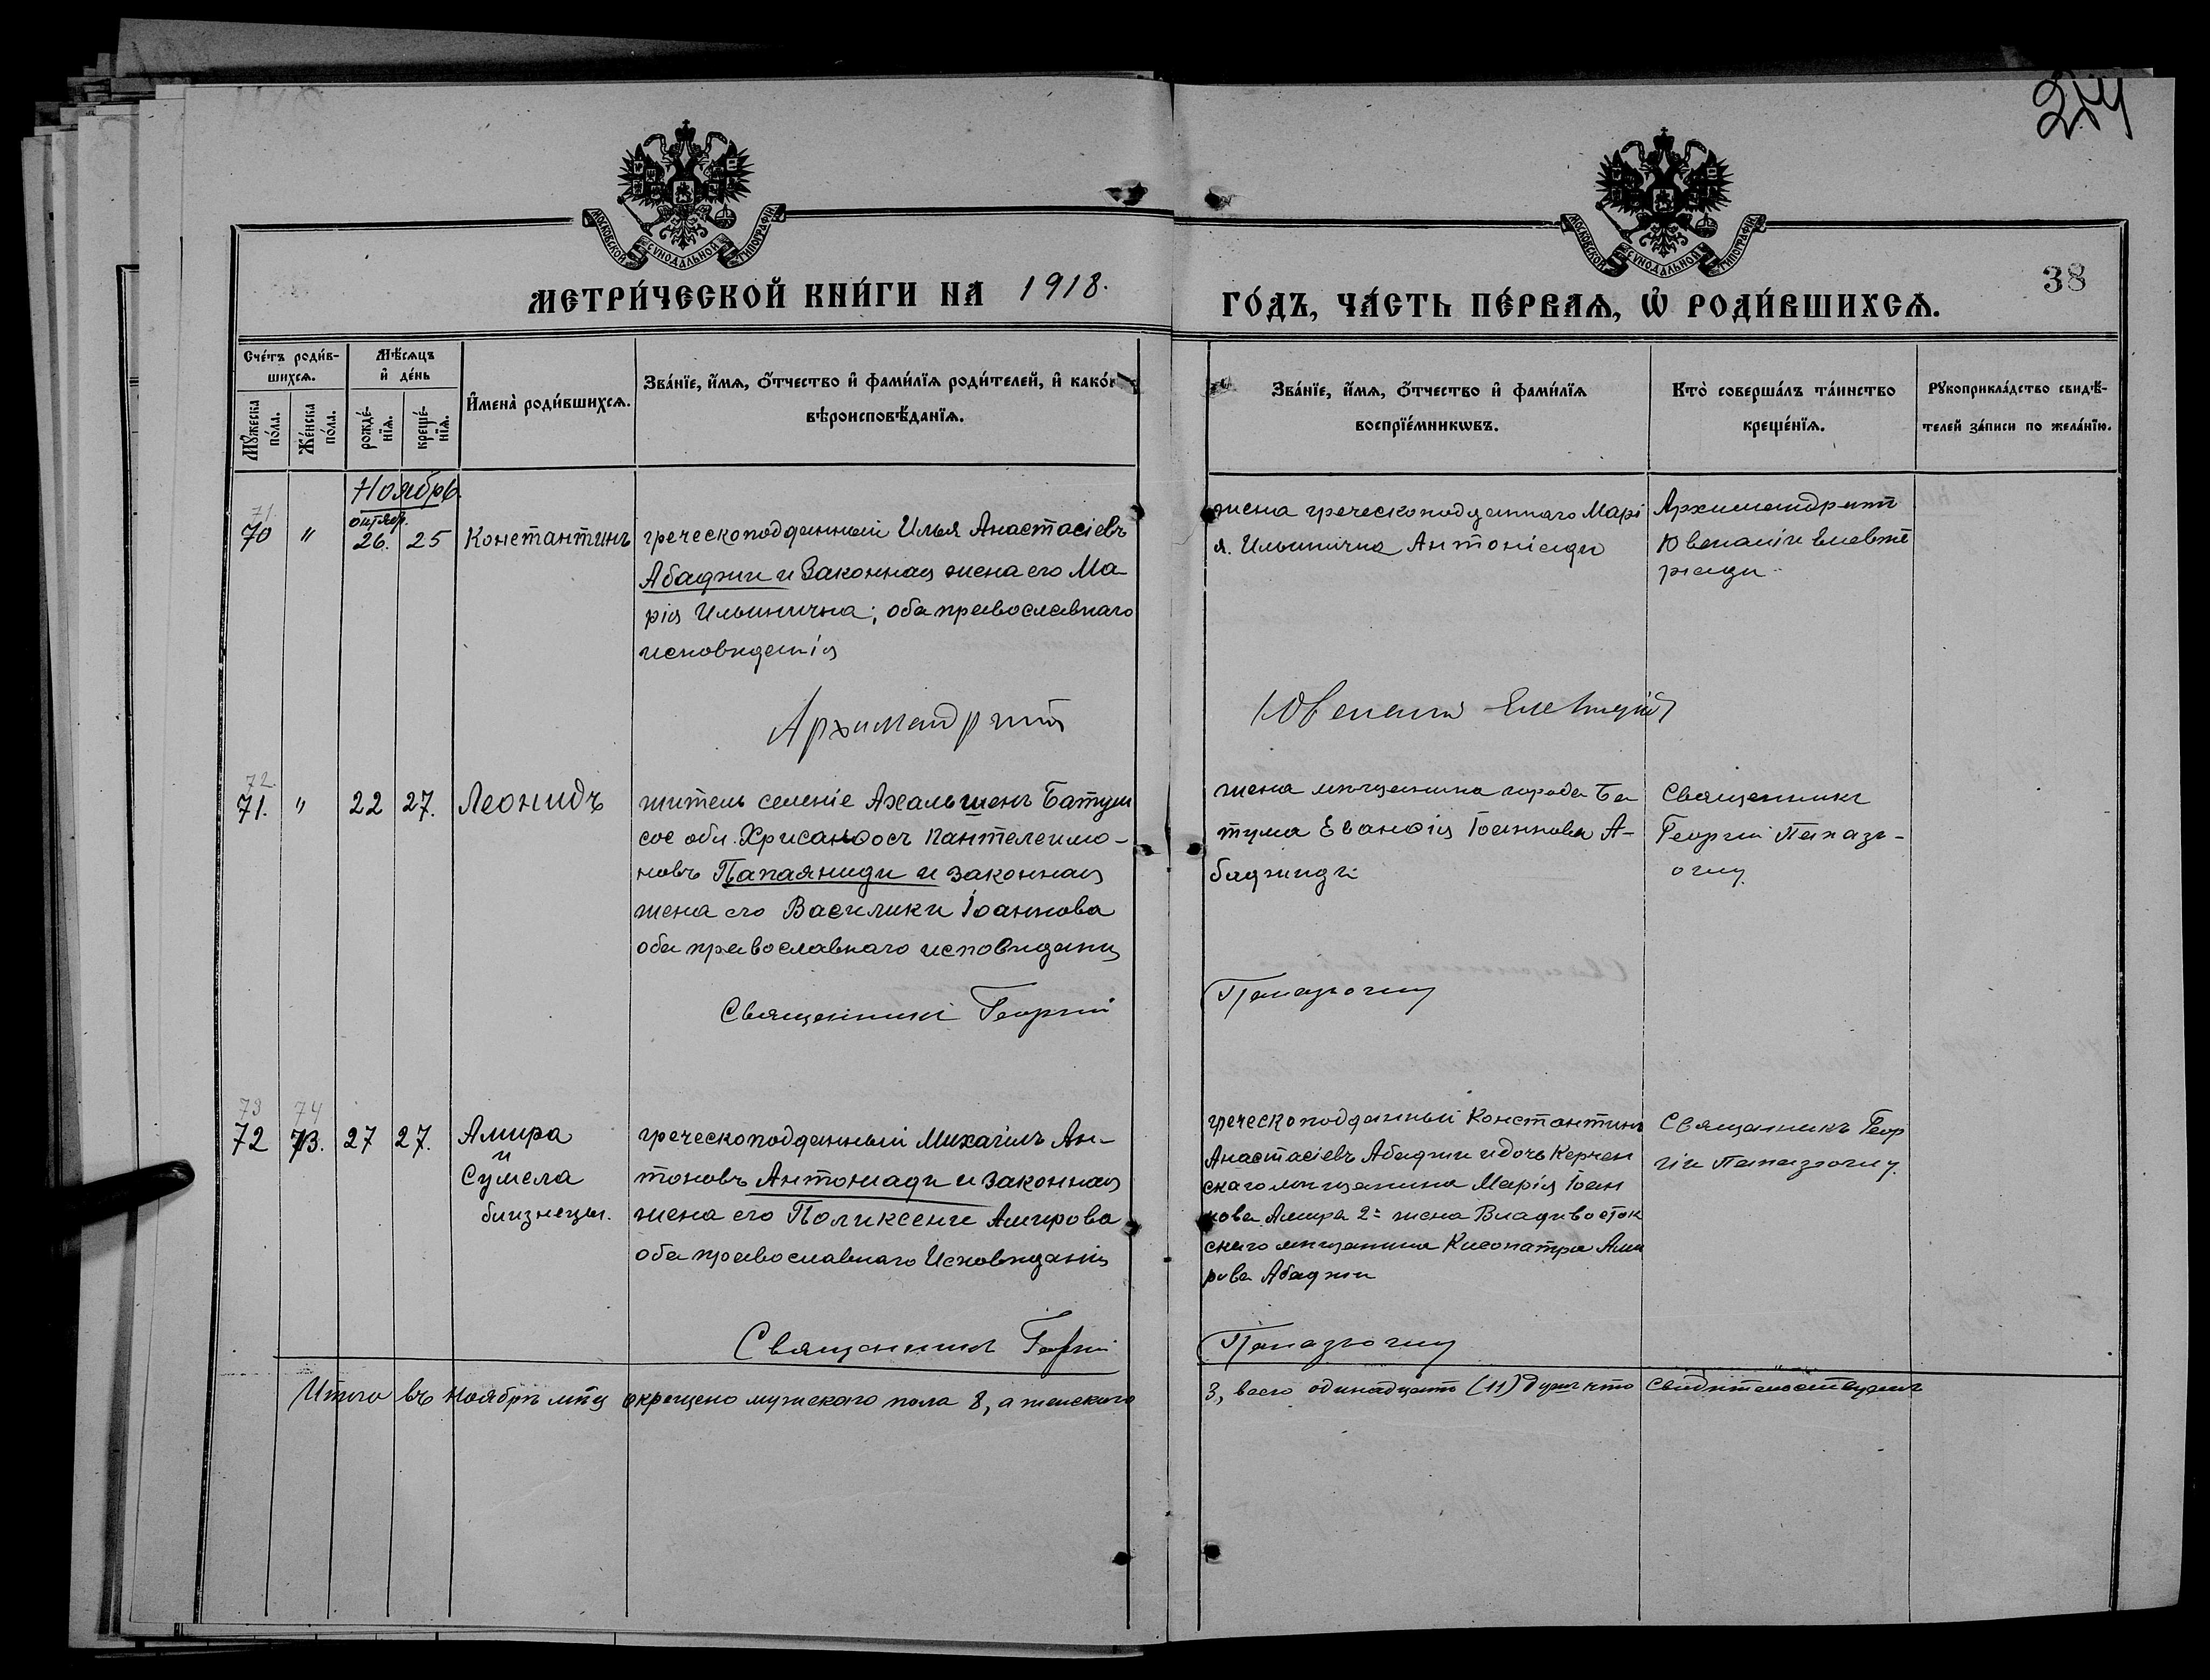 214
38
МОСКОВСКОЙ СѴНОДАЛЬНОЙ ТИПОГРАФІИ
МОСКОВСКОЙ СѴНОДАЛЬНОЙ ТИПОГРАФІИ
МЕТРИ́ЧЕСКОЙ КНИ́ГИ НА 1918.
ГО́ДЪ, ЧА́СТЬ ПЕ́РВАѦ, Ѽ РОДИ́ВШИХСѦ.
Сче́тъ роди́в-
шихсѧ.
Мѹ́жеска
по́ла.
Же́нска
по́ла.
Мѣ́сѧцъ
и҆ де́нь
рожде́-
нїѧ.
креще́-
нїѧ.
И҆мена̀ роди́вшихсѧ.
Зва́нїе, и҆́мѧ, ѻ҆́тчество и҆ фами́лїѧ роди́телей, и҆ како́г
вѣроисповѣ́данїѧ.
Зва́нїе, и҆́мѧ, ѻ҆́тчество и҆ фами́лїѧ
воспрїе́мникѡвъ.
Кто̀ соверша́лъ та́инство
креще́нїѧ.
Рꙋкоприкла́дство свидѣ́-
телей за́писи по жела́нїю.
Ноябрь.
71.
70 " октябр. 26. 25 Константинъ
греческоподданный Илья Анастасіевъ
Абаджи и законная жена его Ма-
рія Ильинична; оба православнаго
исповѣданія
жена греческоподданнаго Марі
я. Ильинична Антоніади
Архимандритъ
Ювеналій
Архимандритъ
Ювеналій
72
71. " 22 27. Леонидъ
житель селеніе Ахальшенъ Батум
сое обл. Хрисанѳосъ Пантелеимо-
новъ Папаяниди и законная
жена его Василики Іоаннова
оба православнаго исповѣданія
жена мѣщанина города Ба
тума Еванѳія Іоаннова А-
баджиди
Священникъ
Георгій Папазъ-
оглу.
Священникъ Георгій
Папазъоглу
73 74
72 73. 27 27. Амира
и
Сумела
близнецы.
греческоподданный Михаилъ Ан-
тоновъ Антоніади и законная
жена его Поликсени Амирова
оба православнаго Исповѣданія
греческоподданный Константинъ
Анастасіевъ Абаджи и дочь Керчен
скаго мѣщанина Марія Іоан
нова Амира 2= жена Владивосток
скаго мѣщанина Клеопатра Ами
рова Абаджи
Священникъ Геор
гій Папазъоглу.
Священникъ Георгій
Папазъоглу
Итого въ Ноябрѣ мѣц окрещено мужскаго пола 8, а женскаго
3, всего одинадцать (11) душъ что свидѣтельствуемъ